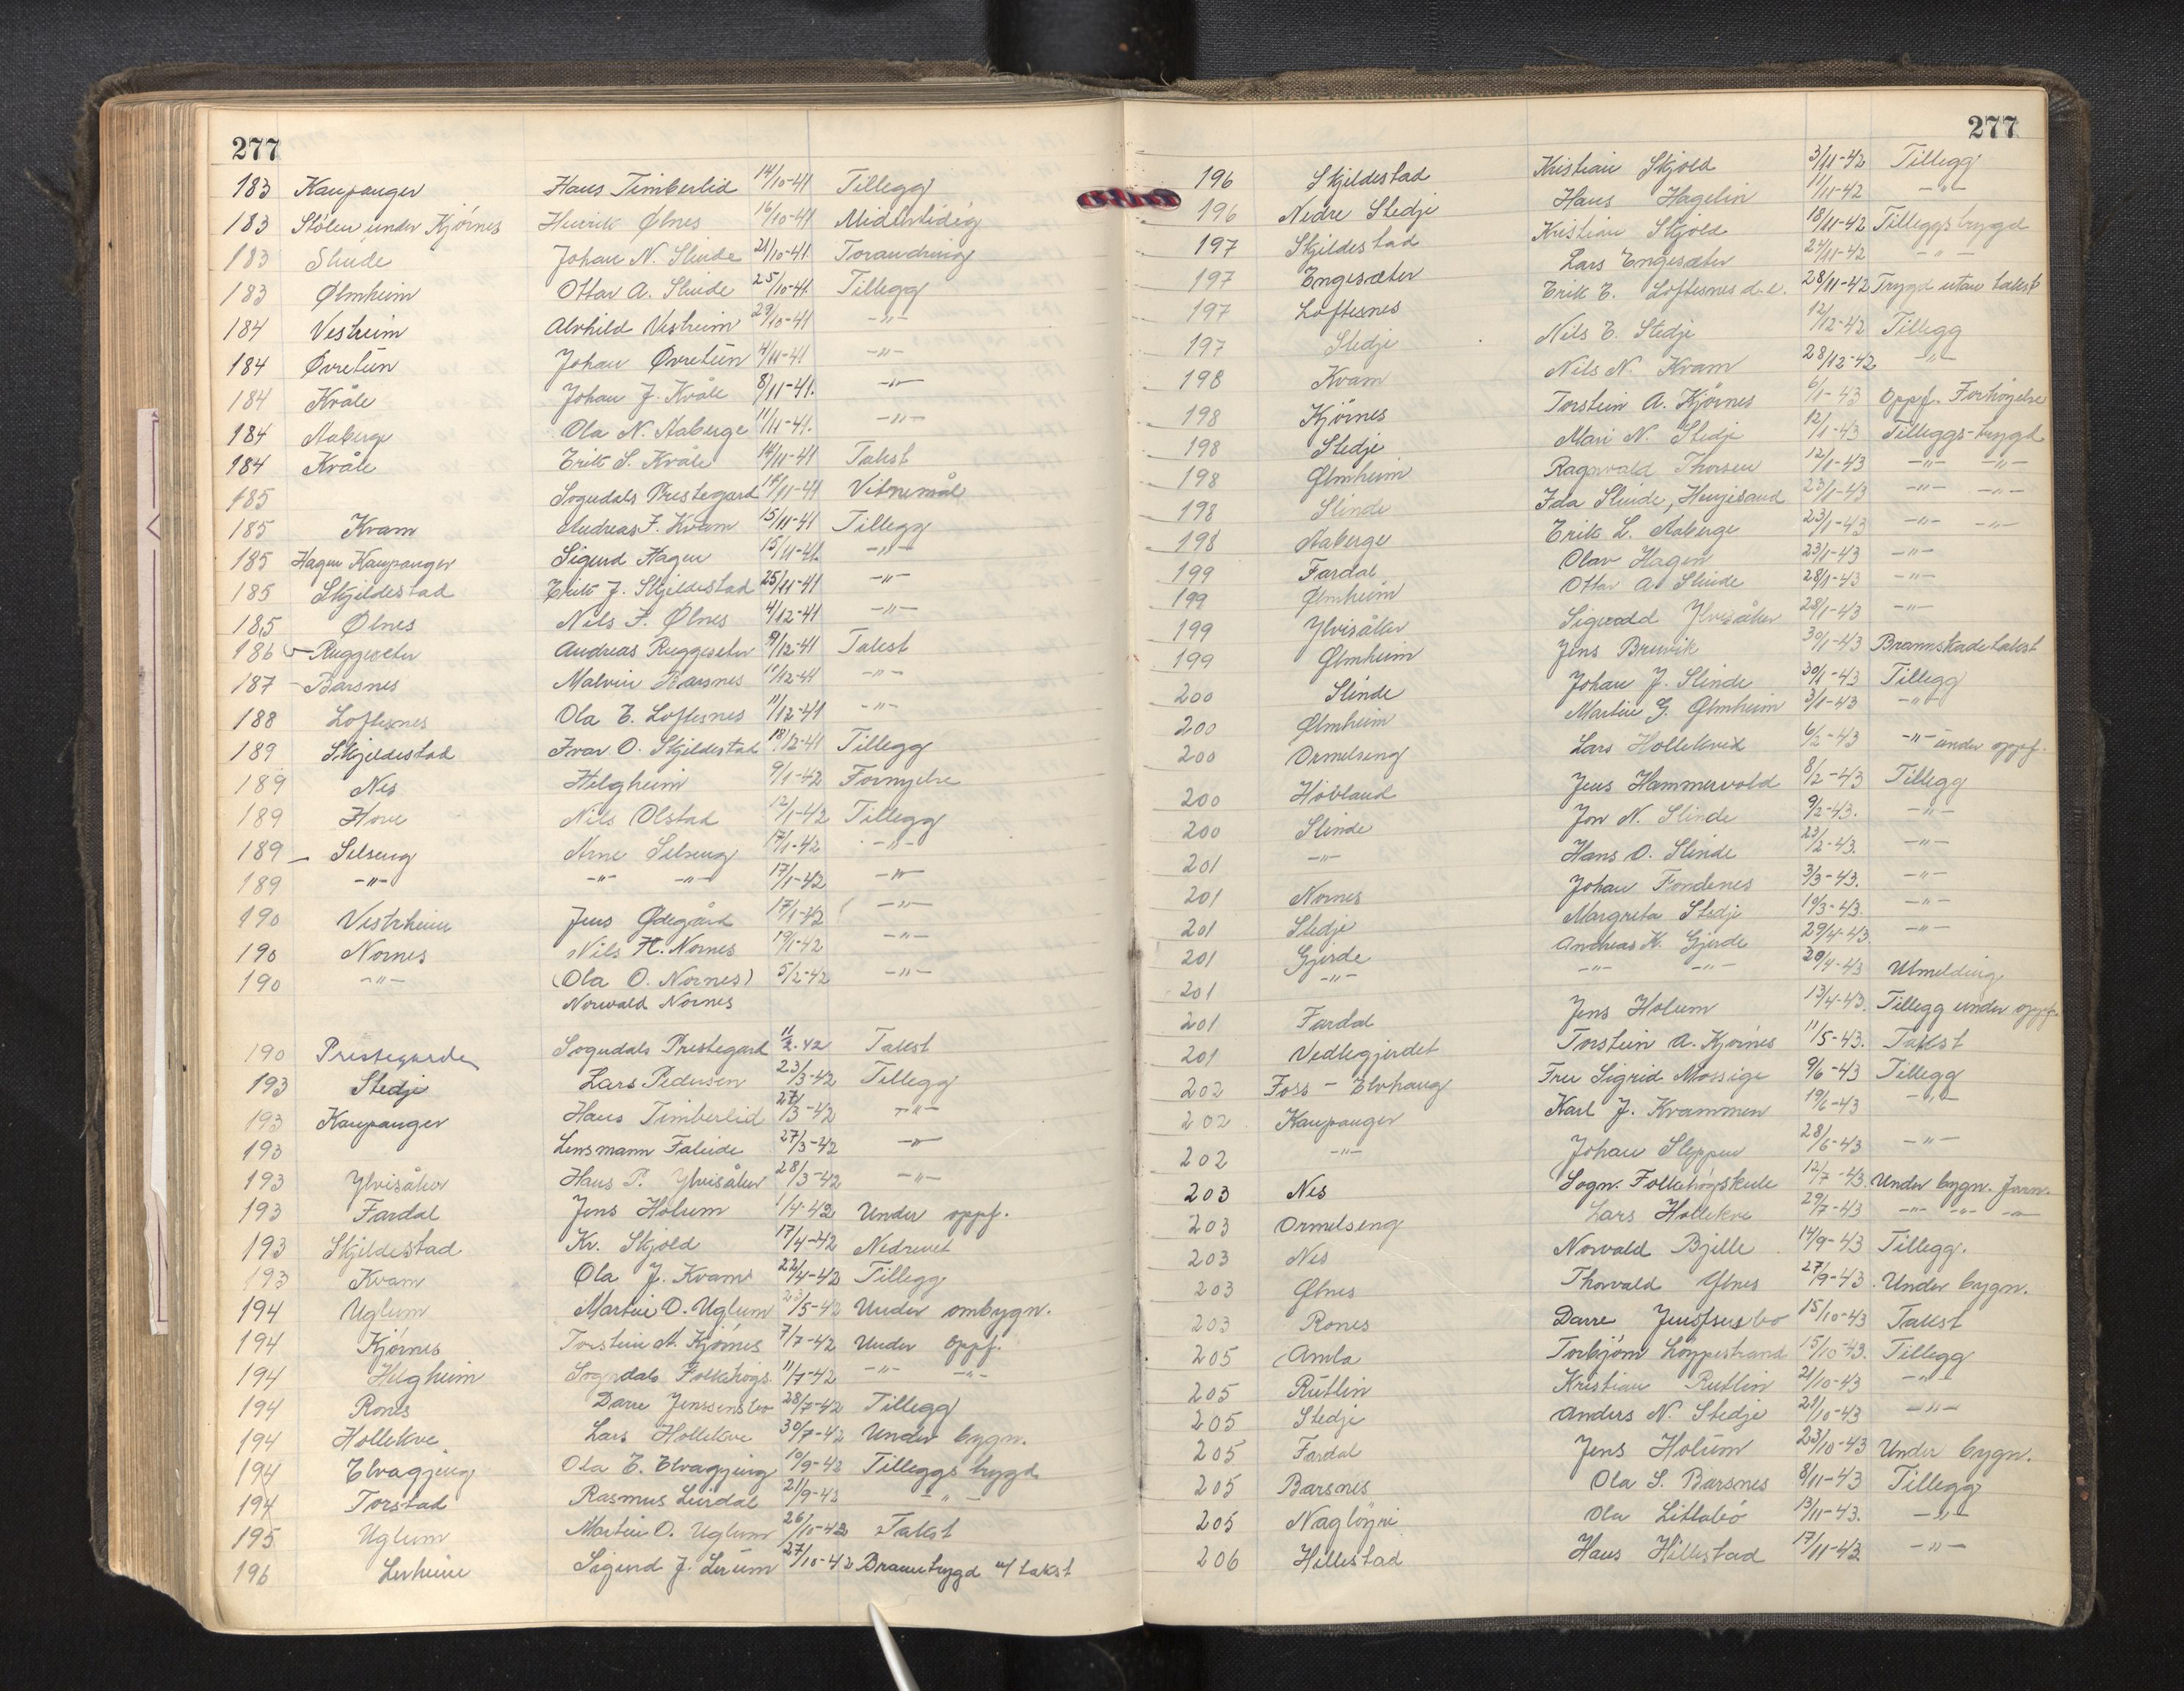 277
183 Kaupanger Hans Timberlid 14/10-41 Tillegg
183 Stölen under Kjörnes Henrik Ølnes 16/10-41 Midlertidig
183 Slinde Johan N. Slinde 21/10-41. Forandring
183 Ølmheim Ottar A. Slinde 25/10-41. Tillegg
184 Vestreim Alvhild Vestreim 29/10-41 -"-
184 Øvretun Johan Øvretun 4/11-41 -"-
184 Kvåle Johan J. Kvåle 8/11-41. -"-
184 Aaberge Ola N. Aaberge 11/11-41. -"-
184 Kvåle Erik S. Kvåle 14/11-41 Takst
185 Sogndals Prestegard 14/11-41 Vitnemål
185 Kvam Andreas F. Kvam 15/11-41 Tillegg
185 Hagen Kaupanger Sigurd Hagen 15/11-41. -"-
185 Skjildestad Erik J. Skjildestad 25/11-41 -"-
185 Ølnes Nils F. Ølnes 4/12-41 -"-
186 Ruggeseter Andreas Ruggeseter 9/12-41 Takst
187 - Barsnes Malvin Barsnes 11/12-41 -"-
188 Loftesnes Ola E. Loftesnes 11/12-41 -"-
189 Skjeldestad Ivar O. Skjildestad 18/12-41 Tillegg
189 Nes Helgheim 9/1-42 Fornyelse
189 Hove Nils Olstad 12/1-42 Tillegg
189 - Selseng Arne Selseng 17/1-42 -"-
189 -"- -"- -"- 17/1-42 -"-
190 Vestrheim Jens Ødegård 17/1-42 -"-
190 Nornes Nils H. Nornes 19/1-42 -"-
190 -"- (Ola O. Nornes) 5/2-42 -"-
Norvald Nornes
190 Prestegarden Sogndals Prestegard 11/2.42 Takst
193 Stedje Lars Pedersen 23/3-42 Tillegg
193 Kaupanger Hans Timberlid 27/3-42 -"-
193 Lensmann Faleide 27/3-42 -"-
193 Ylvisåker Hans P. Ylvisåker 28/3-42 -"-
193 Fardal Jens Holum 1/4-42 Under oppf.
193 Skjildestad Kr. Skjold 17/4-42 Nedrevet
193 Kvam Ola J. Kvam 22/4-42 Tillegg
194 Uglum Martin O. Uglum 23/5-42 Under ombygn.
194 Kjörnes Torstein A. Kjörnes 7/7-42 Under oppf.
194 Helgheim Sogndals Folkehögs. 11/7-42 -"- -"-
194 Rones Darre Jenssensbo 28/7-42 Tillegg
194 Hollekve Lars Hollekve 30/7-42 Under bygn.
194 Elvagjeng Ola E. Elvagjeng 10/9-42 Tilleggs trygd
194 Torstad Rasmus Leirdal 21/9-42 - " -
195 Uglum Martin O. Uglum 26/10-42 Takst
196 Lerheim Sigurd J. Lerum 27/10-42 Branntrygd m/ takst
277
196 Skjeldestad Kristian Skjold 3/11-42 Tillegg
196 Nedre Stedje Hans Hagelin 11/11-42 -"-
197 Skjildestad Kristian Skjold 18/11-42 Tilleggstrygd
197 Engesæter Lars Engesæter 24/11-42 - " -
197 Loftesnes Erik E. Loftesnes d.e. 28/11-42 Trygd utan takst
197 Stedje Nils E. Stedje 12/12-42 Tillegg
198 Kvam Nils N. Kvam 28/12-42 -"-
198 Kjörnes Torstein A. Kjörnes 6/1-43 Oppf. Forhöyelse
198 Stedje Mari N. Stedje 12/1-43 Tilleggs-trygd
198 Ølmheim Ragnvald Thorsen 12/1-43 -"- -"-
198 Slinde Ida Slinde, Henjesand 23/1-43 -"- -"-
198 Aaberge Erik L. Aaberge 23/1-43 -"- -"-
199 Fardal Olav Hagen 23/1-43 -"-
199 Ølmheim Ottar A. Slinde 28/1-43 -"-
199 Ylvisåker Sigvald Ylvisåker 28/1-43 -"-
199 Ølmheim Jens Brurvik 30/1-43 Brannskadetakst
200 Slinde Johan J. Slinde 30/1-43 Tillegg
200 Ølmheim Martin G. Ølmheim 3/1-43 -"-
200 Ormelseng Lars Hollekve 6/2-43 -"- under oppf.
200 Hovland Jens Hammervold 8/2-43 Tillegg
200 Slinde Jon N. Slinde 9/2-43. -"-
201 -"- Hans O. Slinde 23/2-43. -"-
201 Nornes Johan Fondenes 3/3-43. -"-
201 Stedje Margreta Stedje 10/3-43. -"-
201 Gjerde Andreas K. Gjerde 29/4-43. -"-
201 -"- -"- -"- 20/4-43 Utmelding
201 Fardal Jens Holum 13/4-43. Tillegg under oppf.
201 Vedlegjerdet Torstein A. Kjörnes 11/5-43. Takst
202 Foss - Elvhaug Fru Sigrid Mossige 9/6-43 Tillegg
202 Kaupanger Karl J. Kvammen 19/6-43 -"-
202 -"- Johan Sleppen 28/6-43 -"-
203 Nes Sogn. Folkehögskule 12/7-43. Under bygn.
203 Ormelseng Lars Hollekve 29/7-43 -"- -"- -"-
203 Nes Norvald Bjelle 14/9-43 Tillegg.
203 Ølnes Thorvald Ølnes 27/9-43. Under bygn.
203 Rones Darre Jenssensbo 15/10-43 Takst
205 Amla Torbjörn Loppestrand 15/10-43. Tillegg
205 Rutlin Kristian Rutlin 21/10-43 -"-
205 Stedje Anders N. Stedje 21/10-43 -"-
205 Fardal Jens Holum 23/10-43 Under bygn.
205 Barsnes Ola S. Barsnes 8/11-43 Tillegg
205 Naglöyni Ola Litlabö 13/11-43. -"-
206 Hillestad Hans Hillestad 17/11-43 -"-